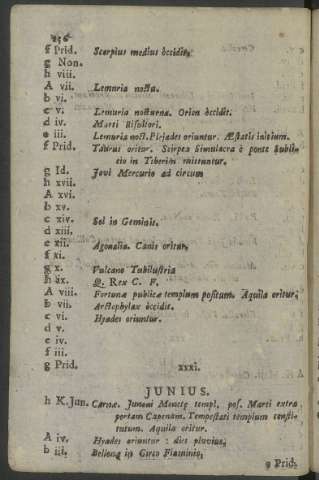 256
f Prid. Scorpius medius occidit.
g Non.
h viii.
A vii. Lemuria nocta.
b vi.
c v. Lemuria nocturna. Orion occidit.
d iv. Marti Bisoltori.
e iii. Lemuria noct. Plejades oriuntur. Æstatis initium.
f Prid. Taurus oritur. Scirpea Simulacra è ponte Subli-
cio in Tiberim mittuntur.
g Id. Jovi Mercurio ad circum
h xvii.
A xvi.
b xv.
c xiv. Sol in Geminis.
d xiii.
e xii. Agonalia. Canis oritur,
f xi.
g x. Vulcano Tubilustria
h ix. Q. Rex C. F.
A viii. Fortunæ publicæ templum positum. Aquila oritur,
b vii. Arctophylax occidit.
c vi. Hyades oriuntur.
d v.
e iv.
f iii.
g Prid. xxxi.
JUNIUS.
h K. Jun. Carnæ. Junoni Monetæ templ. pos. Marti extra
portam Capenam. Tempestati templum consti-
tutum. Aquila oritur.
A iv. Hyades oriuntur : dies pluvius,
b iii. Bellonæ in Circo Flaminio,
g Prid.